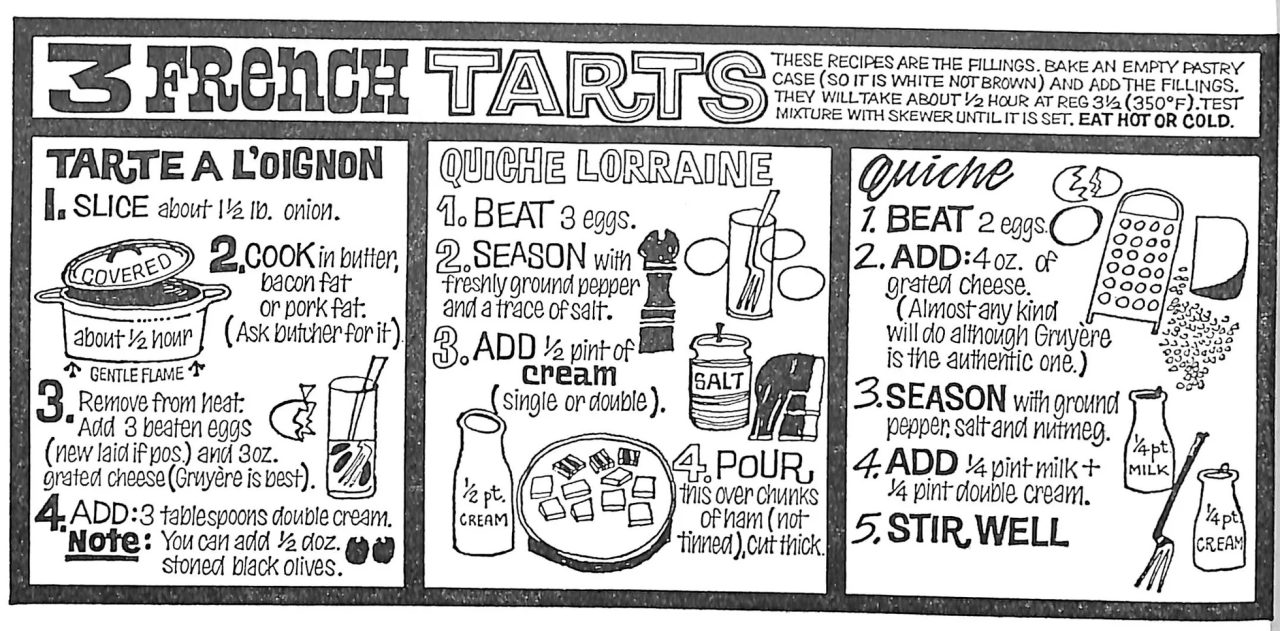 3 FRENCH TARTS
THESE RECIPES ARE THE FILLINGS. BAKE AN EMPTY PASTRY
CASE (SO IT IS WHITE NOT BROWN) AND ADD THE FILLINGS.
THEY WILL TAKE ABOUT ½ HOUR AT REG 3½ (350°F). TEST
MIXTURE WITH SKEWER UNTIL IT IS SET. EAT HOT OR COLD.
TARTE A L'OIGNON
1. SLICE about 1½ lb. onion.
COVERED
about ½ hour
GENTLE FLAME
2. COOK in butter,
bacon fat
or pork fat.
(Ask butcher for it).
3. Remove from heat.
Add 3 beaten eggs
(new laid if pos.) and 3 oz.
grated cheese (Gruyère is best).
4. ADD: 3 tablespoons double cream.
Note: You can add ½ doz.
stoned black olives.
QUICHE LORRAINE
1. BEAT 3 eggs.
2. SEASON with
freshly ground pepper
and a trace of salt.
3. ADD ½ pint of
cream
(single or double).
SALT
½ pt.
CREAM
4. POUR
this over chunks
of ham (not
tinned), cut thick.
Quiche
1. BEAT 2 eggs.
2. ADD: 4 oz. of
grated cheese.
(Almost any kind
will do although Gruyère
is the authentic one.)
3. SEASON with ground
pepper, salt and nutmeg.
4. ADD ¼ pint milk +
¼ pint double cream.
5. STIR WELL
¼ pt
MILK
¼ pt.
CREAM